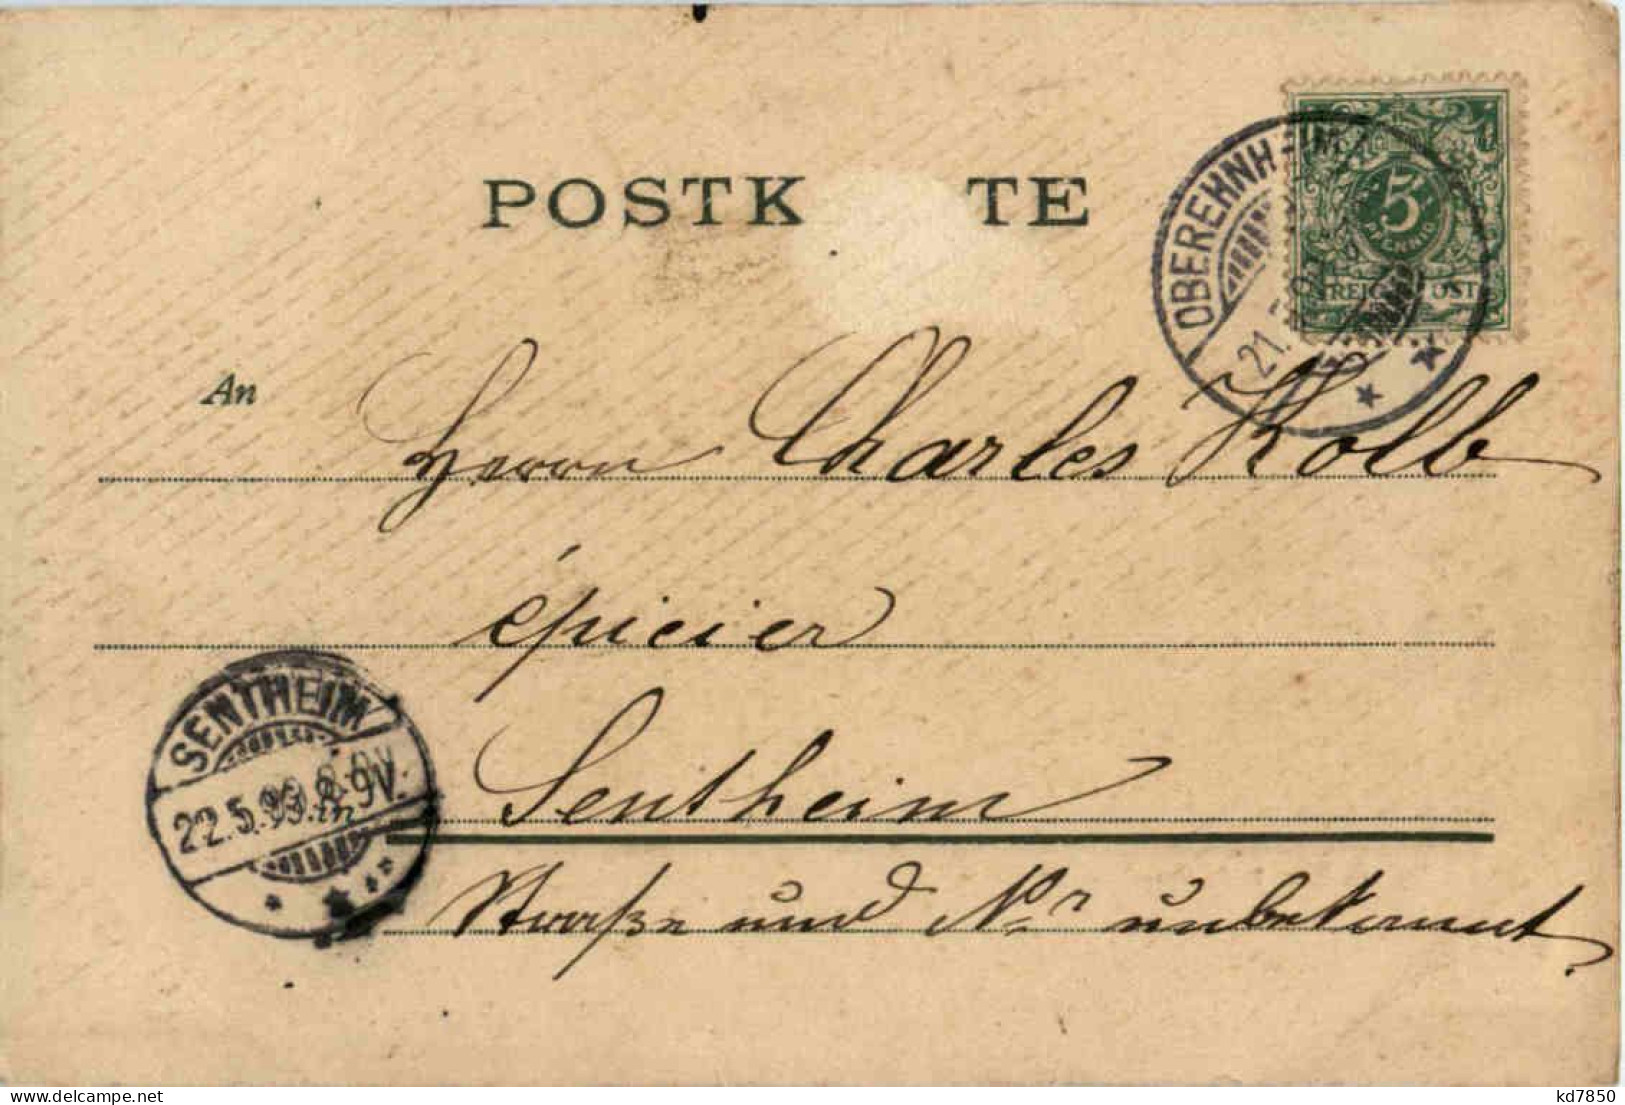 POSTK TE
OBEREHNHEIM
21.
5
PFENNIG
REICHSPOST
An
Herrn Charles Kolb
épicier
SENTHEIM
22.5.99. 8-9V.
Sentheim
Straße und Nr unbekannt.
kd7850